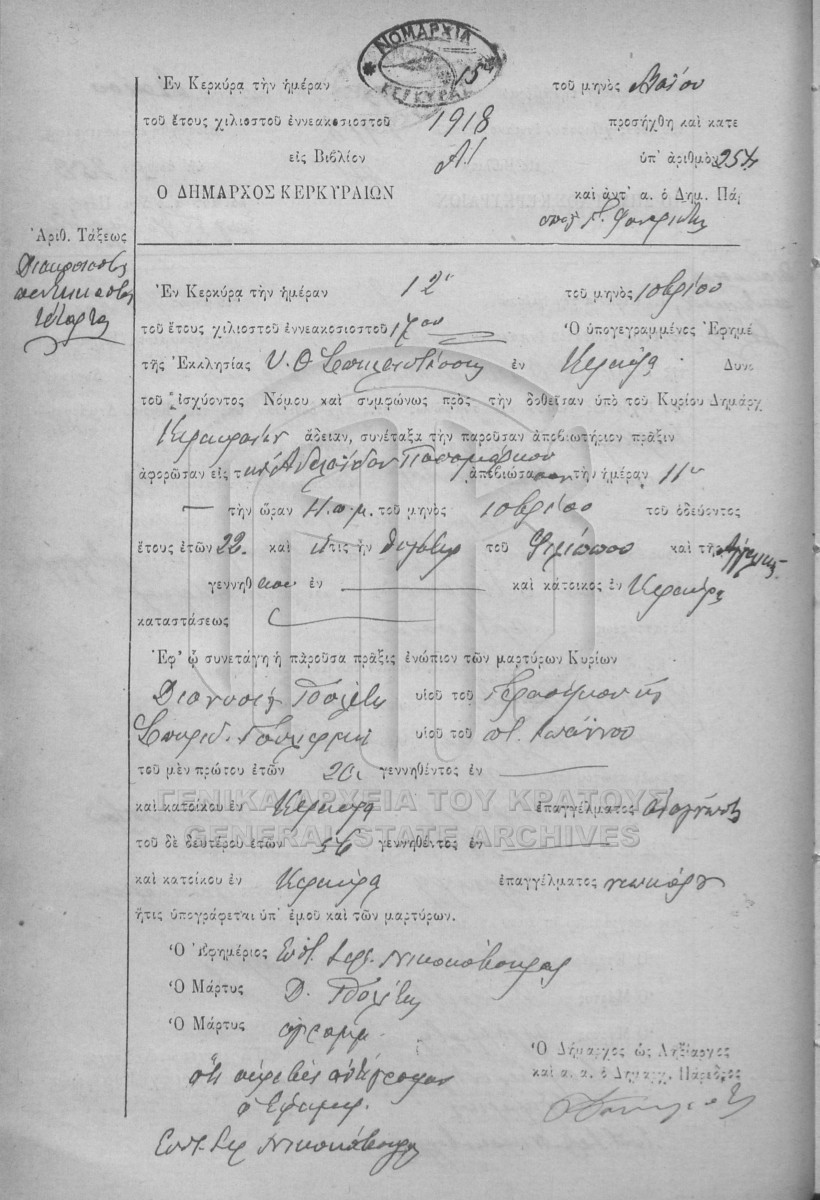 ΝΟΜΑΡΧΙΑ
ΚΕΡΚΥΡΑΣ
Ἐν Κερκύρᾳ τὴν ἡμέραν 15 τοῦ μηνὸς Μαΐου
τοῦ ἔτους χιλιοστοῦ ἐννεακοσιοστοῦ 1918 προσήχθη καὶ κατε
εἰς Βιβλίον Α! ὑπ' ἀριθμὸν 254
Ο ΔΗΜΑΡΧΟΣ ΚΕΡΚΥΡΑΙΩΝ καὶ ἀντ' α. ὁ Δημ. Πάρ
Ἀριθ. Τάξεως
Διακοσιοστὴ
πεντηκοστὴ
τετάρτη
Ἐν Κερκύρᾳ τὴν ἡμέραν 12 τοῦ μηνὸς 10βρίου
τοῦ ἔτους χιλιοστοῦ ἐννεακοσιοστοῦ 17ου Ὁ ὑπογεγραμμένος Ἐφημέ
τῆς Ἐκκλησίας Υ. Θ Σπηλαιωτίσσης ἐν Κερκύρᾳ Δυνά
τοῦ ἰσχύοντος Νόμου καὶ συμφώνως πρὸς τὴν δοθεῖσαν ὑπὸ τοῦ Κυρίου Δημάρχ
Κερκυραίων ἄδειαν, συνέταξα τὴν παροῦσαν ἀποβιωτήριον πρᾶξιν
ἀφορῶσαν εἰς τὴν Ἀδελαΐδαν Παπαμάρκου ἀποβιώσασαν τὴν ἡμέραν 11
τὴν ὥραν 4 π.μ. τοῦ μηνὸς 10βρίου τοῦ ὁδεύοντος
ἔτους ἐτῶν 22 καὶ ἥτις ἦν θυγάτηρ τοῦ Φιλίππου καὶ τῆς Ἀγγελικῆς
γεννηθ εῖσαν ἐν καὶ κάτοικος ἐν Κερκύρᾳ
καταστάσεως
Ἐφ' ᾧ συνετάγη ἡ παροῦσα πρᾶξις ἐνώπιον τῶν μαρτύρων Κυρίων
Διονυσίου υἱοῦ τοῦ Γερασίμου
Σπυρίδ. υἱοῦ τοῦ Ἰωάννου
τοῦ μὲν πρώτου ἐτῶν 20 γεννηθέντος ἐν
καὶ κατοίκου ἐν Κερκύρᾳ ἐπαγγέλματος ἀναγνώστ
ΓΕΝΙΚΑ ΑΡΧΕΙΑ ΤΟΥ ΚΡΑΤΟΥΣ
GENERAL STATE ARCHIVES
τοῦ δὲ δευτέρου ἐτῶν 56 γεννηθέντος ἐν
καὶ κατοίκου ἐν Κερκύρᾳ ἐπαγγέλματος νεωκόρου
ἥτις ὑπογράφεται ὑπ' ἐμοῦ καὶ τῶν μαρτύρων.
Ὁ Ἐφημέριος
Ὁ Μάρτυς Δ.
Ὁ Μάρτυς ἀγράμμ.
Ὁ Δήμαρχος ὡς Ληξίαρχος
καὶ α. α. ὁ Δημαρχ. Πάρεδρος
ὅτι ἀκριβὲς ἀντίγραφον
ὁ ἐφημερ.